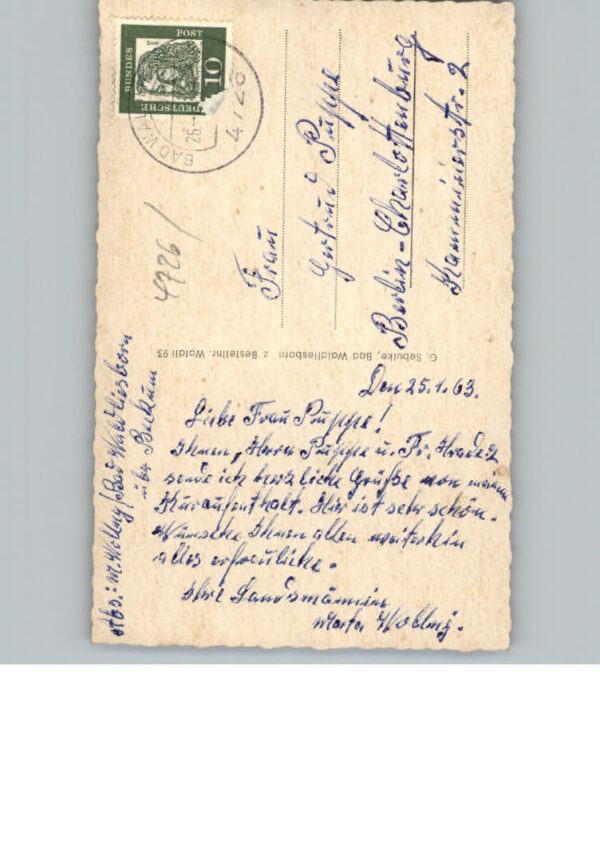 DEUTSCHE BUNDESPOST
10
4726
26.
BAD WAL
4726/
Frau
Gertrud Puppe
Berlin-Charlottenburg
str. 2
G. Sebulke, Bad Waldliesborn z Bestellnr. Waldli 93
Abs.: M. Wollny/Bad Waldliesborn
über Beckum
Den 25.1.63.
Liebe Frau Puppe!
Ihnen, Herrn Puppe u. Fr.
sende ich herzliche Grüße von meinem
Kuraufenthalt. Hier ist sehr schön.
Wünsche Ihnen allen weiterhin
alles erfreuliche.
Ihre Landsmännin
Marta Wollny.